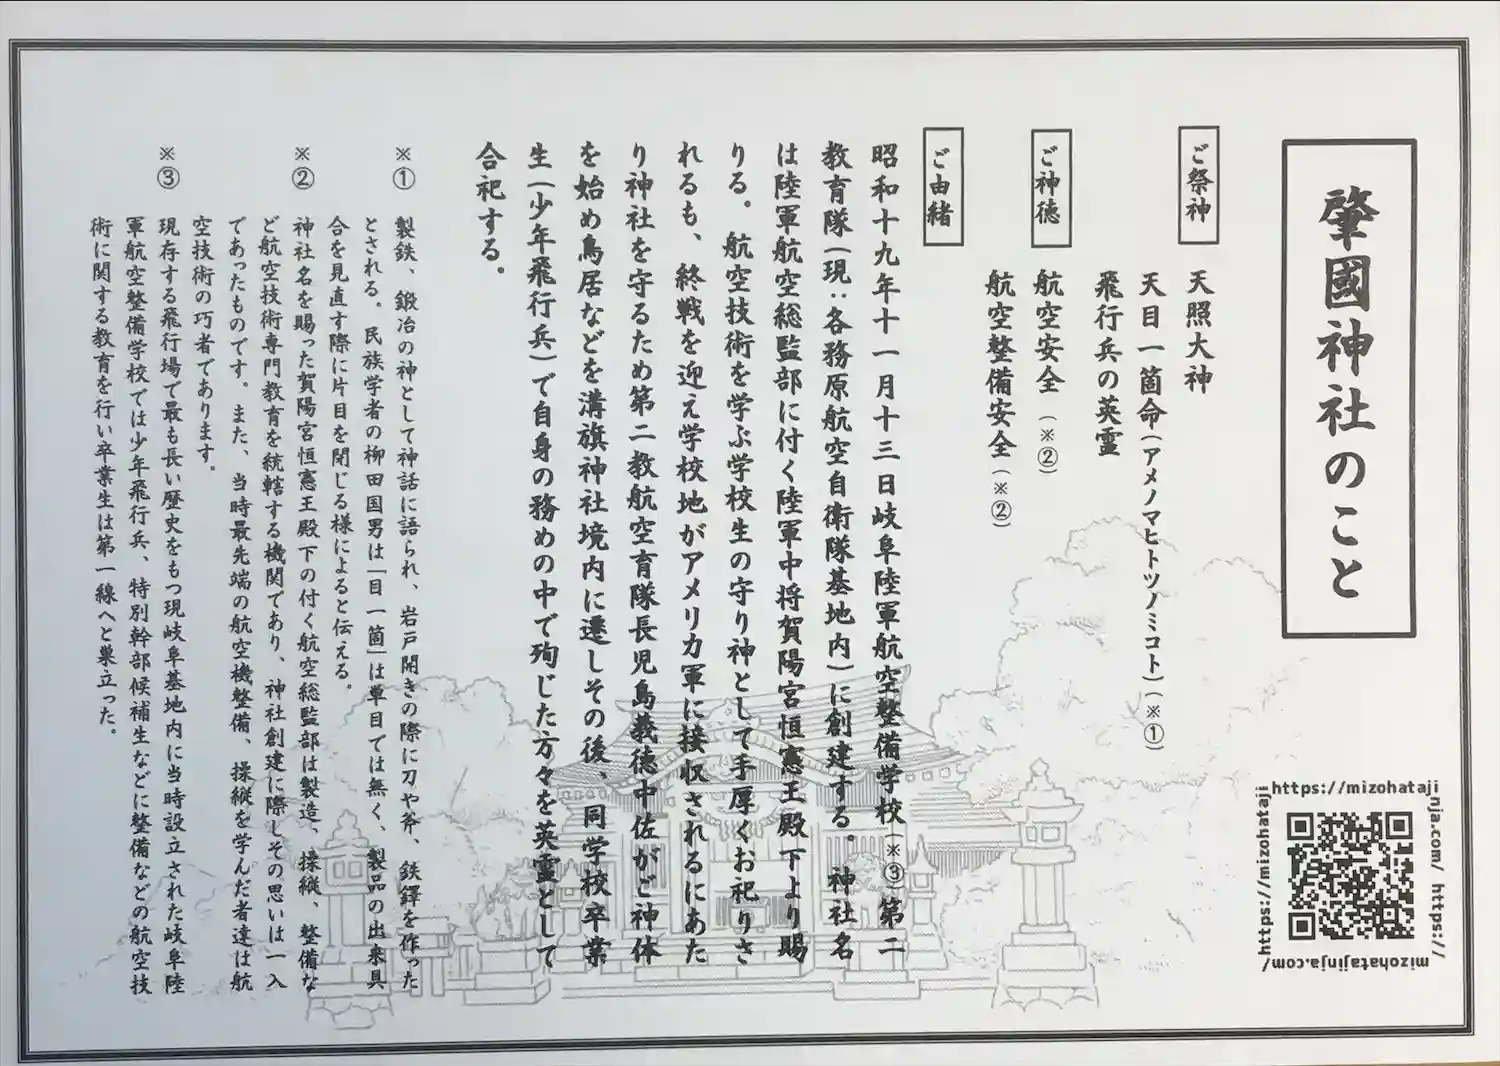 肇國神社のこと
ご祭神
天照大神
天目一箇命(アメノマヒトツノミコト)(※①)
飛行兵の英霊
ご神徳
航空安全(※②)
航空整備安全(※②)
ご由緒
昭和十九年十一月十三日岐阜陸軍航空整備学校(※③)第二
教育隊(現:各務原航空自衛隊基地内)に創建する。神社名
は陸軍航空総監部に付く陸軍中将賀陽宮恒憲王殿下より賜
りる。航空技術を学ぶ学校生の守り神として手厚くお祀りさ
れるも、終戦を迎え学校地がアメリカ軍に接収されるにあた
り神社を守るため第二教航空育隊長児島義徳中佐がご神体
を始め鳥居などを溝旗神社境内に遷しその後、同学校卒業
生(少年飛行兵)で自身の務めの中で殉じた方々を英霊として
合祀する。
※① 製鉄、鍛冶の神として神話に語られ、岩戸開きの際に刀や斧、鉄鐸を作った
とされる。民族学者の柳田国男は「目一箇」は単目では無く、製品の出来具
合を見直す際に片目を閉じる様によると伝える。
※② 神社名を賜った賀陽宮恒憲王殿下の付く航空総監部は製造、操縦、整備な
ど航空技術専門教育を統轄する機関であり、神社創建に際しその思いは一入
であったものです。また、当時最先端の航空機整備、操縦を学んだ者達は航
空技術の巧者であります。
※③ 現存する飛行場で最も長い歴史をもつ現岐阜基地内に当時設立された岐阜陸
軍航空整備学校では少年飛行兵、特別幹部候補生などに整備などの航空技
術に関する教育を行い卒業生は第一線へと巣立った。
https://mizohatajinja.com/ https://mizohatajinja.com/ https://mizohataji